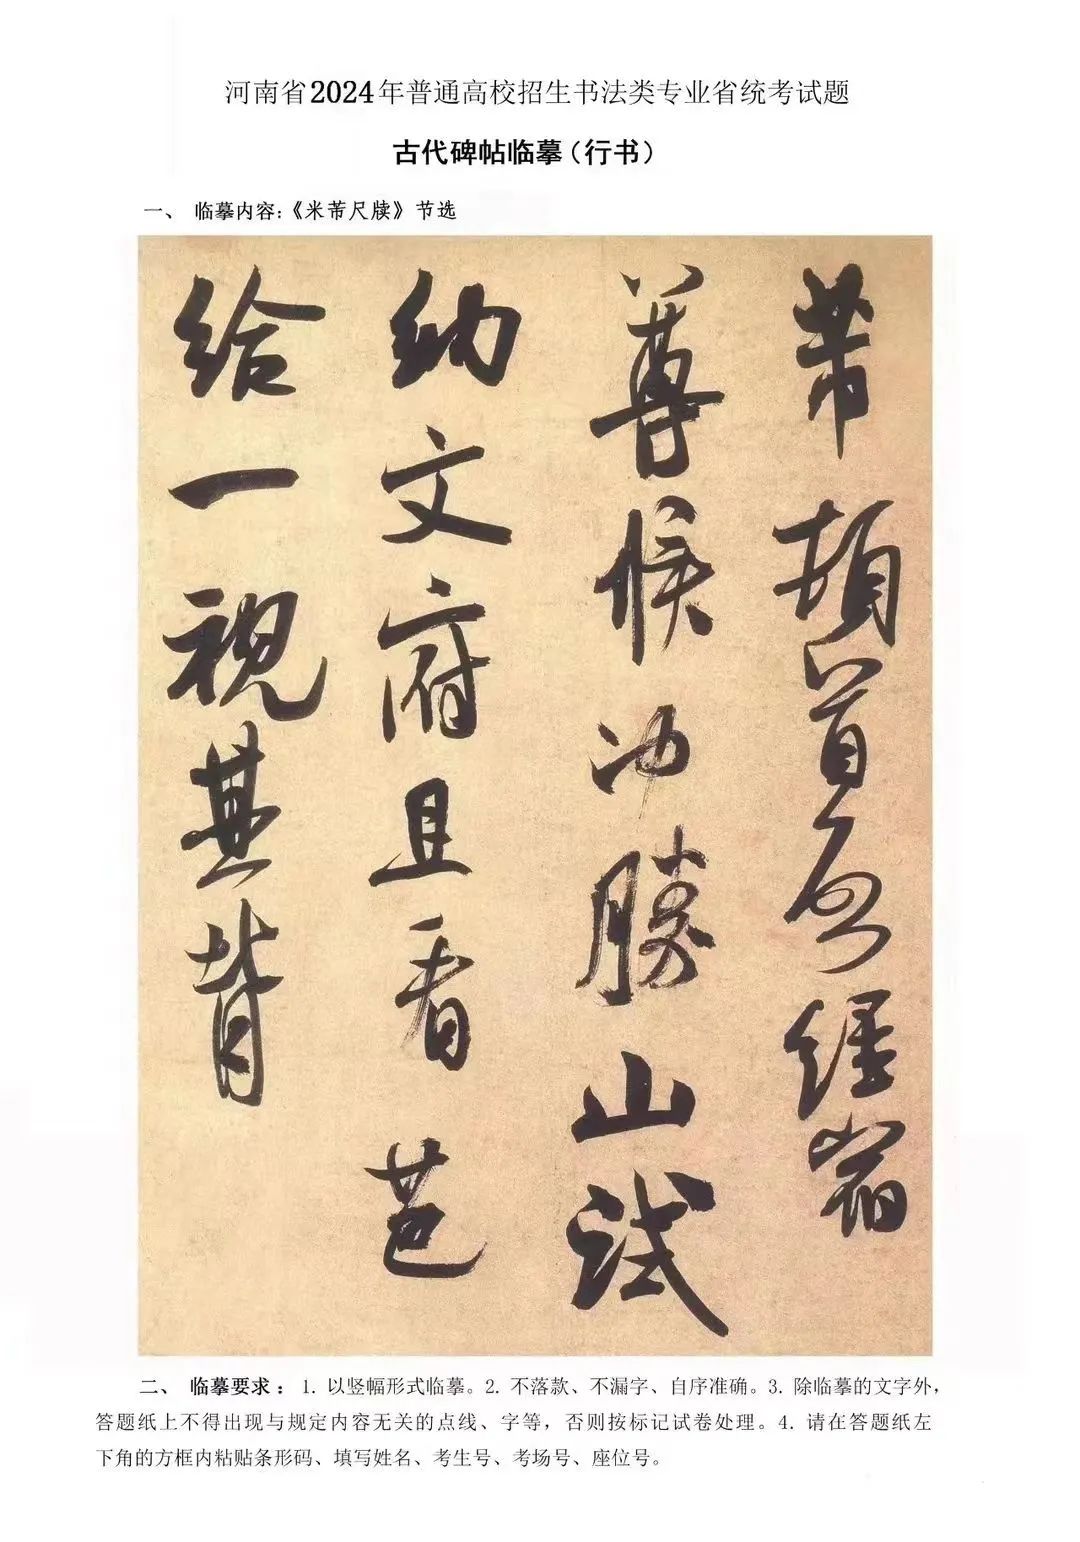 河南省2024年普通高校招生书法类专业省统考试题
古代碑帖临摹(行书)
一、 临摹内容:《米芾尺牍》节选
芾頓首再經宿
尊候冲勝山試
納文府且看芭
給一視其背
二、 临摹要求: 1. 以竖幅形式临摹。2. 不落款、不漏字、自序准确。3. 除临摹的文字外,
答题纸上不得出现与规定内容无关的点线、字等,否则按标记试卷处理。4. 请在答题纸左
下角的方框内粘贴条形码、填写姓名、考生号、考场号、座位号。